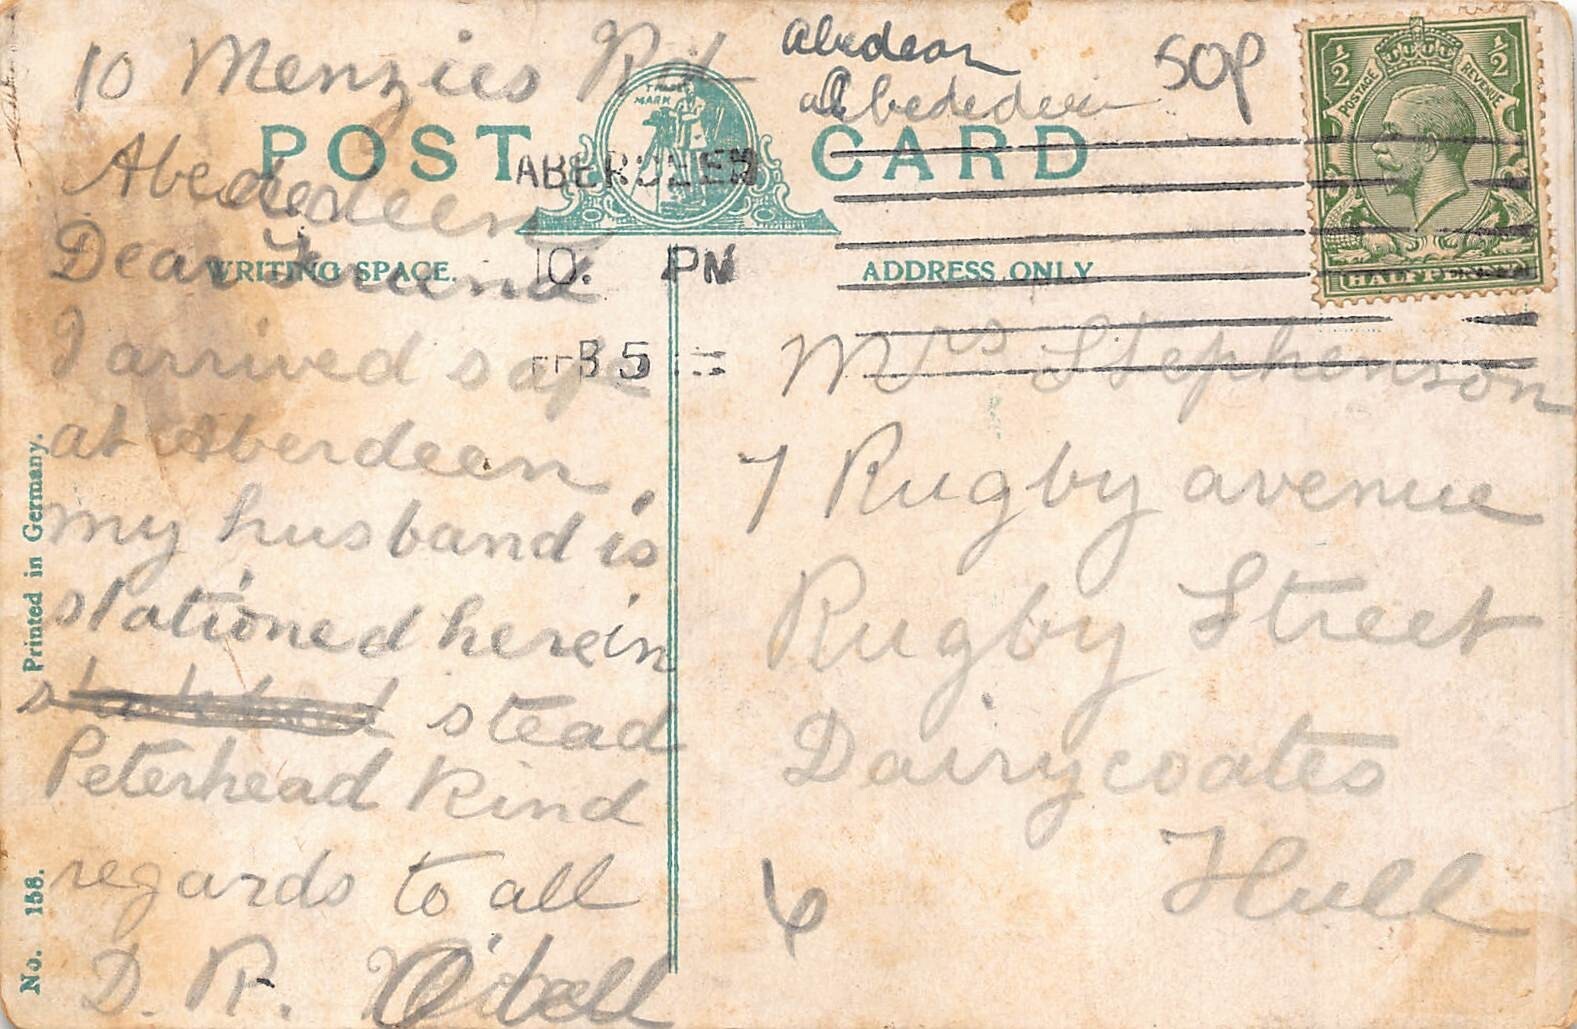 10 Menzies Rd
Aberdeen
Dear Friend
I arrived safe
at Aberdeen.
my husband is
stationed here in
stead
Peterhead Kind
regards to all
D. R.
abedean
abededeen
50p
POST CARD
TRADE
MARK
WRITING SPACE.
ADDRESS ONLY
ABERDEEN
10. PM
FEB 5
½ ½
POSTAGE REVENUE
HALFPENNY
Mrs Stephenson
7 Rugby avenue
Rugby Street
Dairycoates
Hull
6
Printed in Germany.
No. 158.